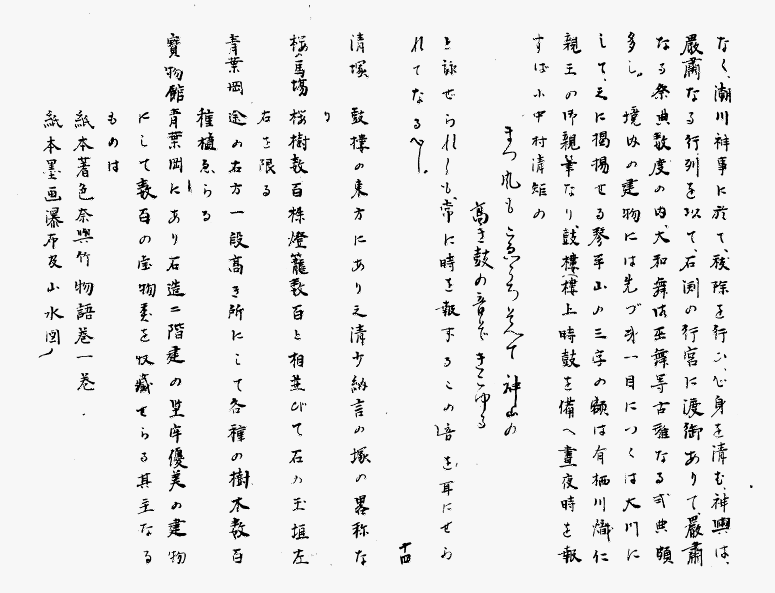 なく、潮川神事に於て、祓除を行ひ、心身を清む、神輿は、
嚴肅なる行列を以て、石渕の行宮に渡御ありて、嚴肅
なる祭典数度の内、大和舞は巫舞等古雅なる式典頗
多し。境内の建物には先づ第一目につくは大門に
して、之に揭揚せる琴平山の三字の額は有栖川熾仁
親王の御親筆なり鼓樓(樓上時鼓を備へ晝夜時を報
すは小中村清矩の
まつ風も 神山の
高き鼓の音ぞきこゆる
と詠せられしも常に時を報するこの音を耳にせら
れてなるべし。
十四
清塚 鼓樓の東方にあり之清少納言の塚の畧称な
り
桜馬場 桜樹数百株燈籠数百と相並びて石の玉垣左
右を限る
青葉岡 途の右方一段高き所にして各種の樹木数百
種植ゑらる
寶物館 青葉岡にあり石造二階建の堅牢優美の建物
にして数百の宝物を収藏せらる其主なる
ものは
紙本著色奈與竹物語卷一卷
紙本墨画瀑布及山水図